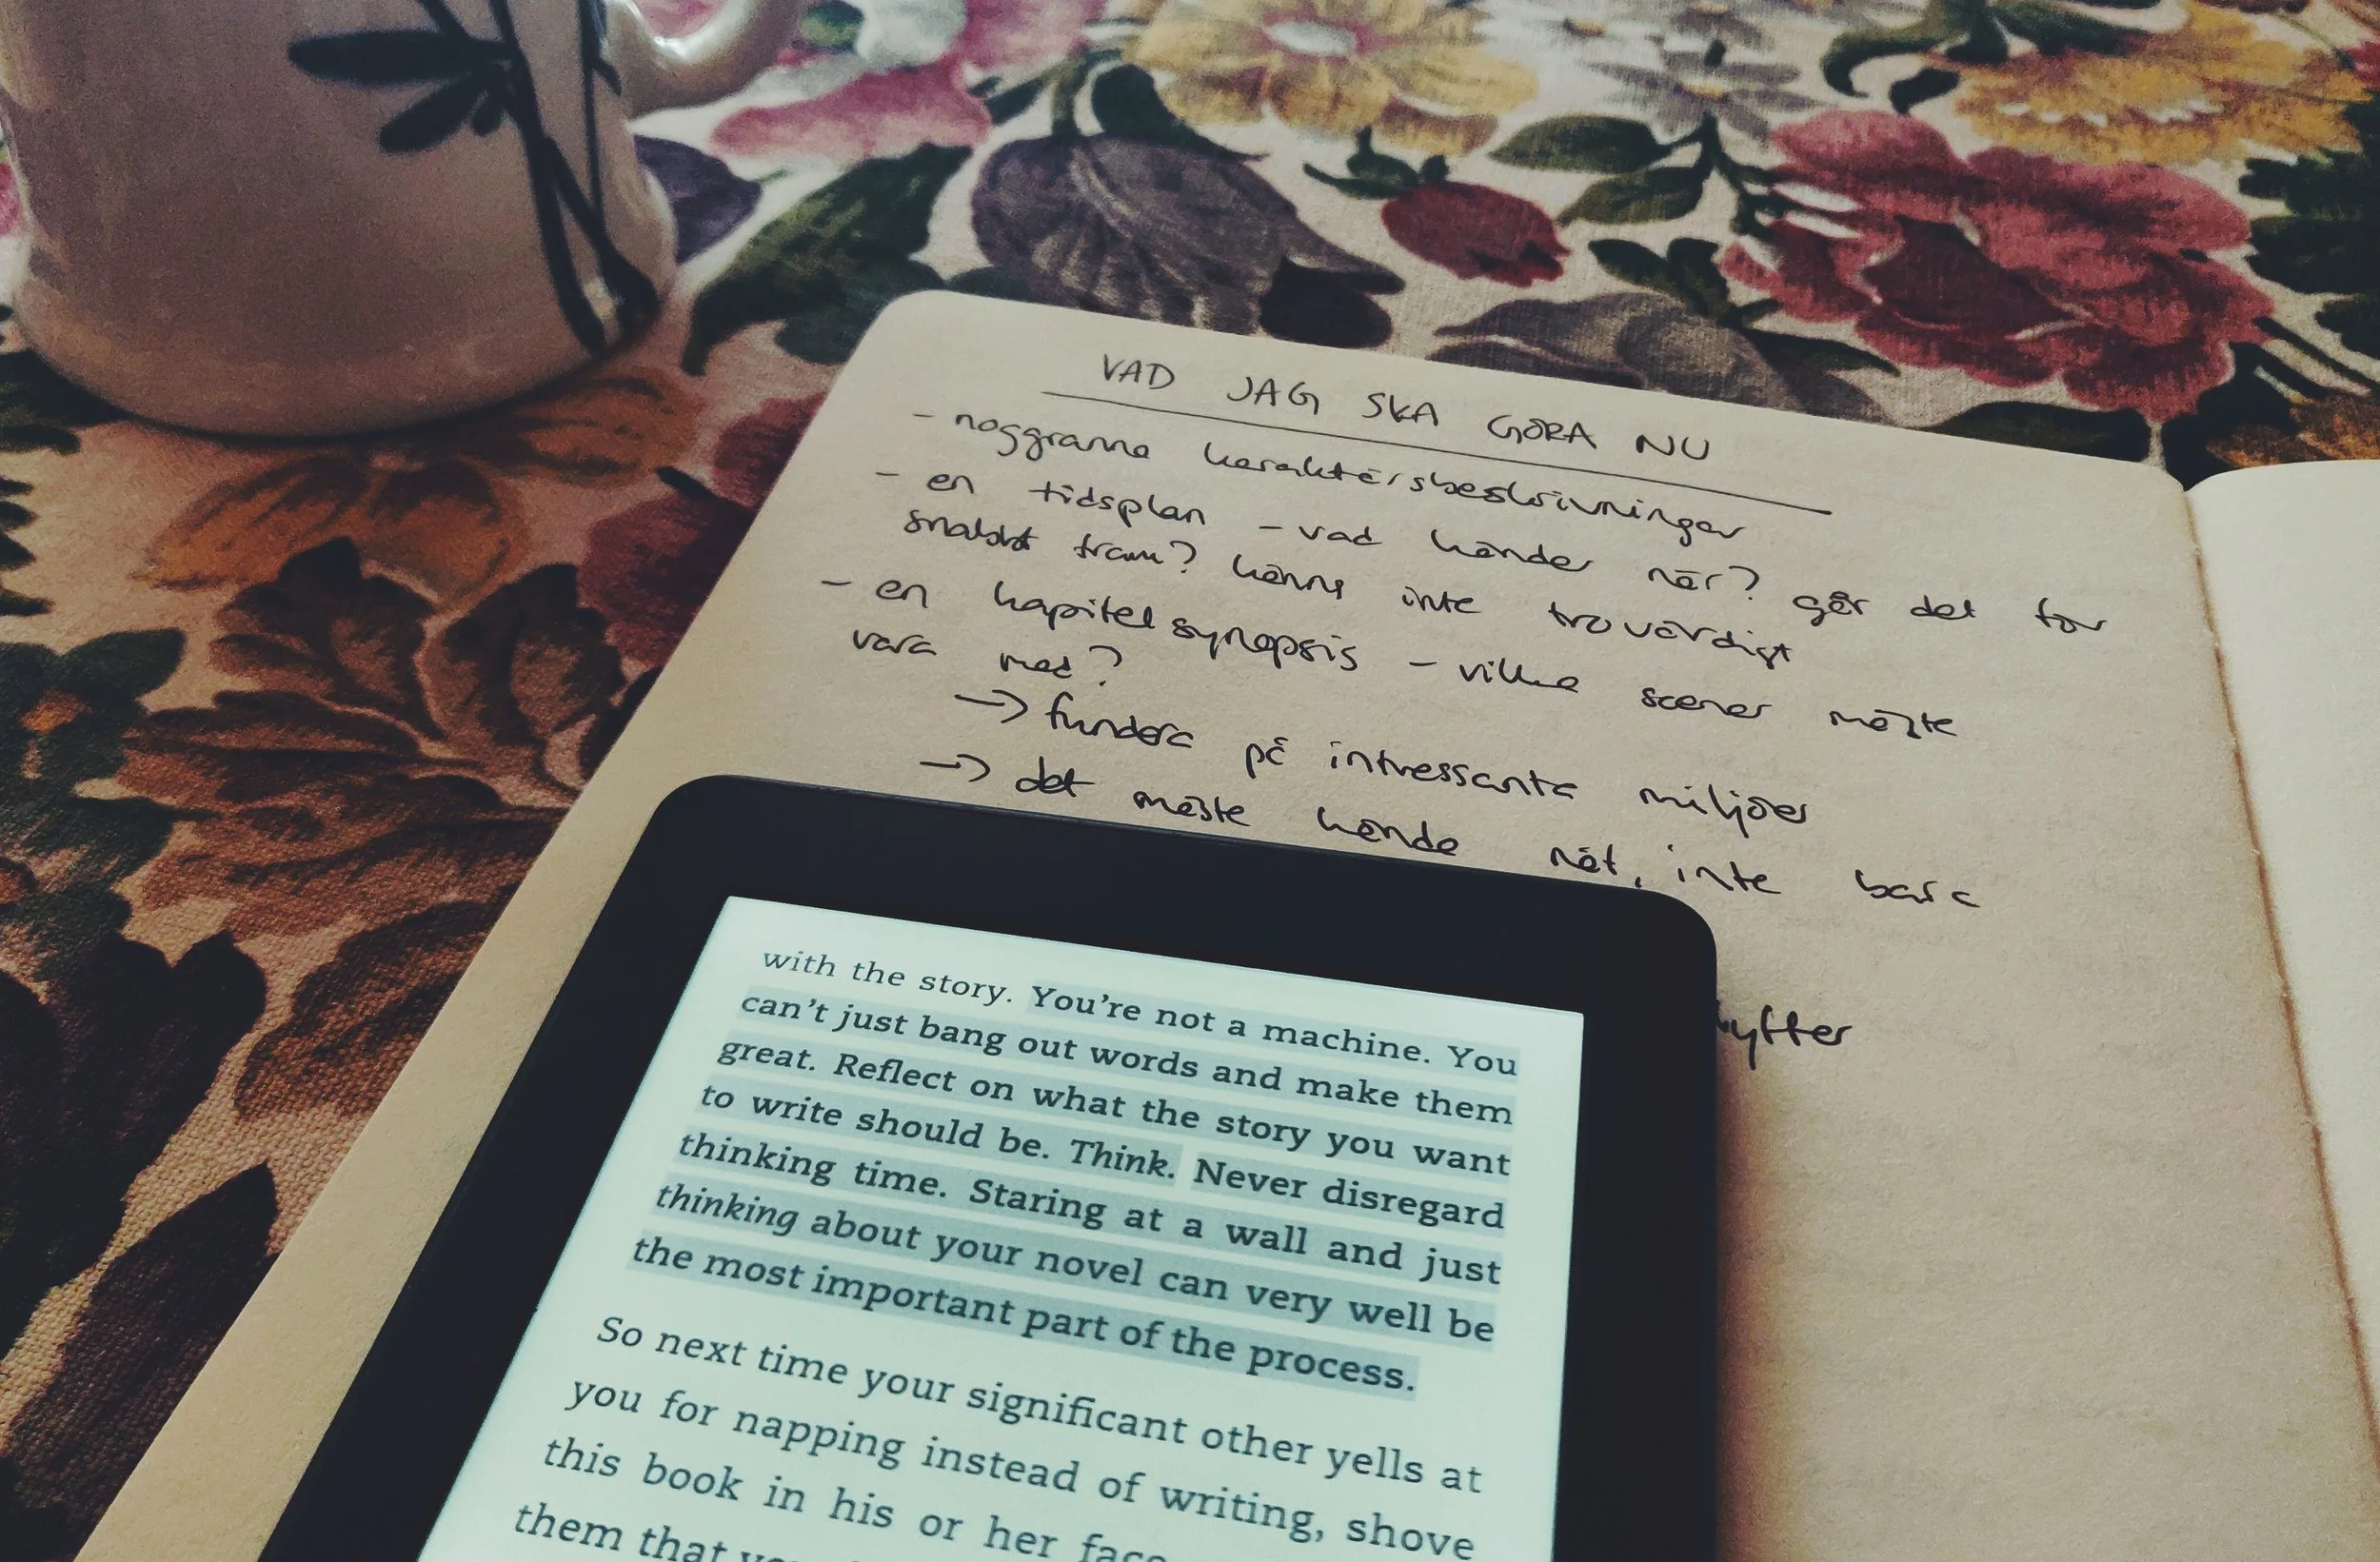 VAD JAG SKA GÖRA NU
- noggranna karaktärsbeskrivningar
- en tidsplan - vad händer när? går det för
snabbt fram? känns inte trovärdigt
- en kapitelsynopsis - vilka scener måste
vara med?
→ fundera på intressanta miljöer
→ det måste hända nåt, inte bara
with the story. You're not a machine. You
can't just bang out words and make them
great. Reflect on what the story you want
to write should be. Think. Never disregard
thinking time. Staring at a wall and just
thinking about your novel can very well be
the most important part of the process.
So next time your significant other yells at
you for napping instead of writing, shove
this book in his or her face
them that